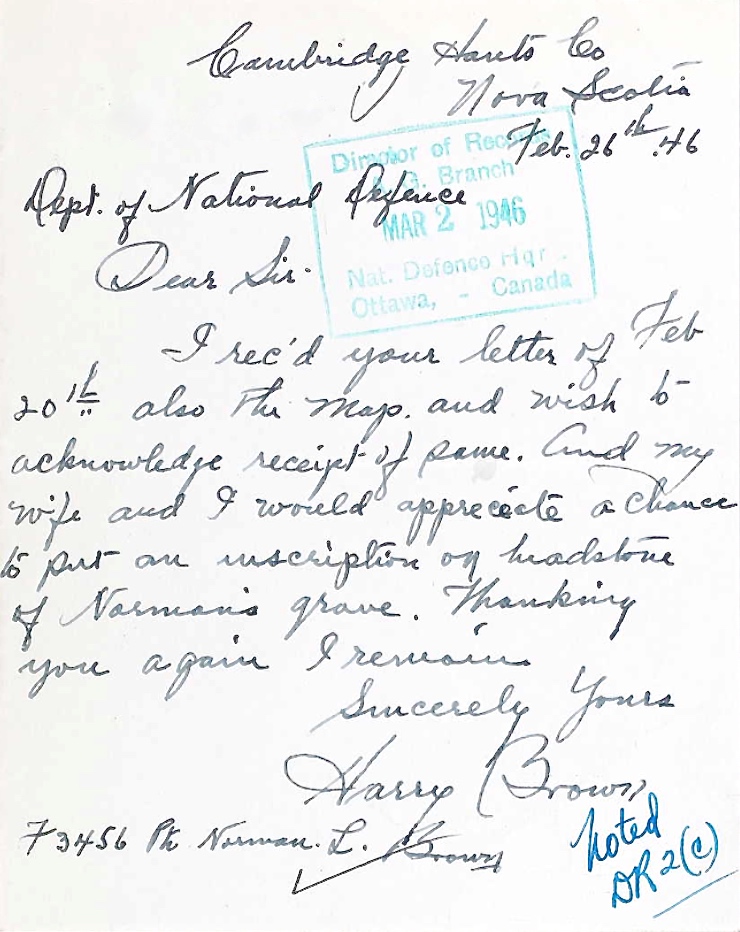 Cambridge Hants Co
Nova Scotia
Feb. 26th. 46
Director of Records
A.G. Branch
MAR 2 1946
Nat. Defence Hqr.
Ottawa, - Canada
Dept. of National Defence
Dear Sir.
I rec'd your letter of Feb
20th also the map. and wish to
acknowledge receipt of same. And my
wife and I would appreciate a chance
to put an inscription on headstone
of Norman's grave. Thanking
you again I remain
Sincerely Yours
Harry Brown
F3456 Pte Norman. L. Brown
Noted
DR2(C)